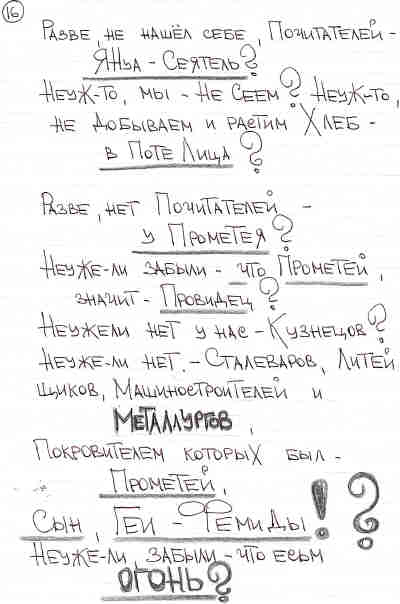 16
Разве, не нашёл себе, Почитателей -
Янъа - Сеятель?
Неуж-то, мы - не Сеем? Неуж-то,
не добываем и растим Хлеб -
в Поте Лица?
Разве, нет Почитателей -
у Прометея?
Неуже-ли забыли - что Прометей,
значит - Провидец?
Неужели нет у нас - Кузнецов?
Неуже-ли нет. - Сталеваров, Литей
щиков, Машиностроителей и
Металлургов,
Покровителем которых был -
Прометей,
Сын, Геи - Фемиды!?
Неуже-ли, забыли - что есьм
огонь?